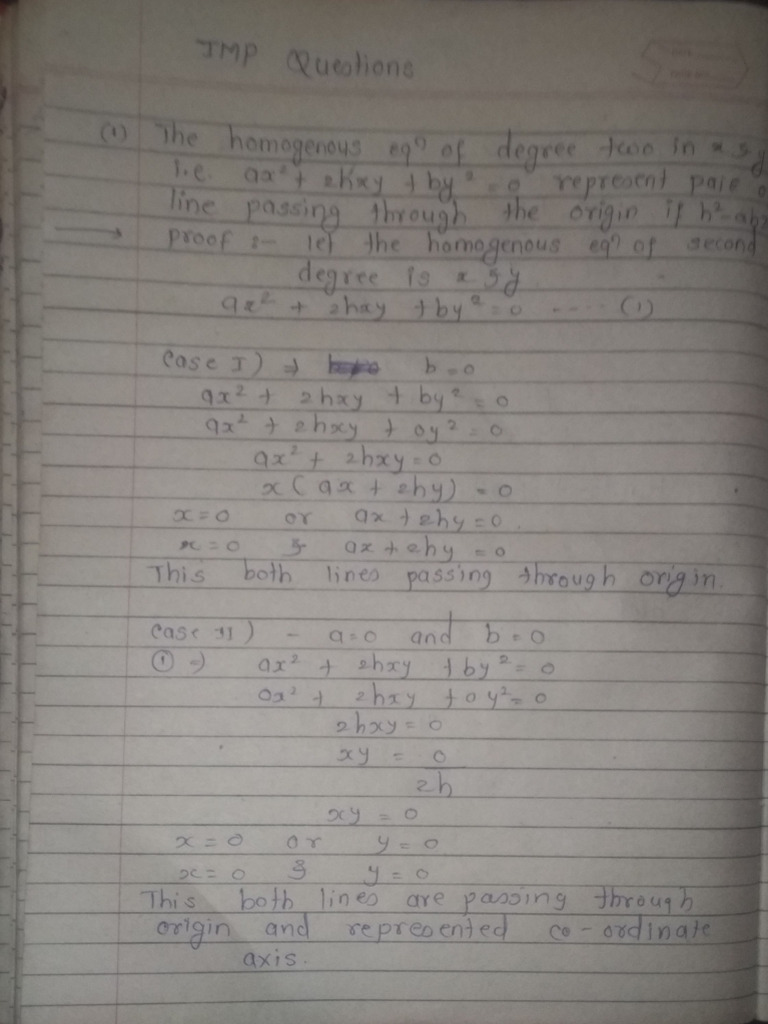 IMP Questions
(1) The homogenous eqn of degree two in x & y
i.e. ax² + 2hxy + by² = 0 represent paie
line passing through the origin if h²-ab
→ proof :- let the homogenous eqn of second
degree is x & y
ax² + 2hxy + by² = 0 ..... (1)
Case I) ⇒ b = 0
ax² + 2hxy + by² = 0
ax² + 2hxy + 0y² = 0
ax² + 2hxy = 0
x ( ax + 2hy) = 0
x = 0 or ax + 2hy = 0.
x = 0 & ax + 2hy = 0
This both lines passing through origin.
Case II) - a = 0 and b = 0
① ⇒ ax² + 2hxy + by² = 0
0x² + 2hxy + 0y² = 0
2hxy = 0
xy = 0
2h
xy = 0
x = 0 or y = 0
x = 0 & y = 0
This both lines are passing through
origin and represented co-ordinate
axis.